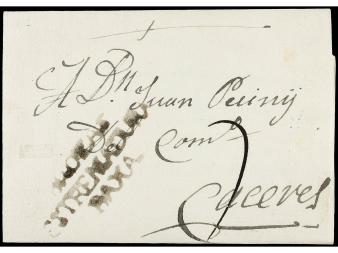 A Dn Juan
Del Como
Caceres
7
ESTREMADURA
BAXA